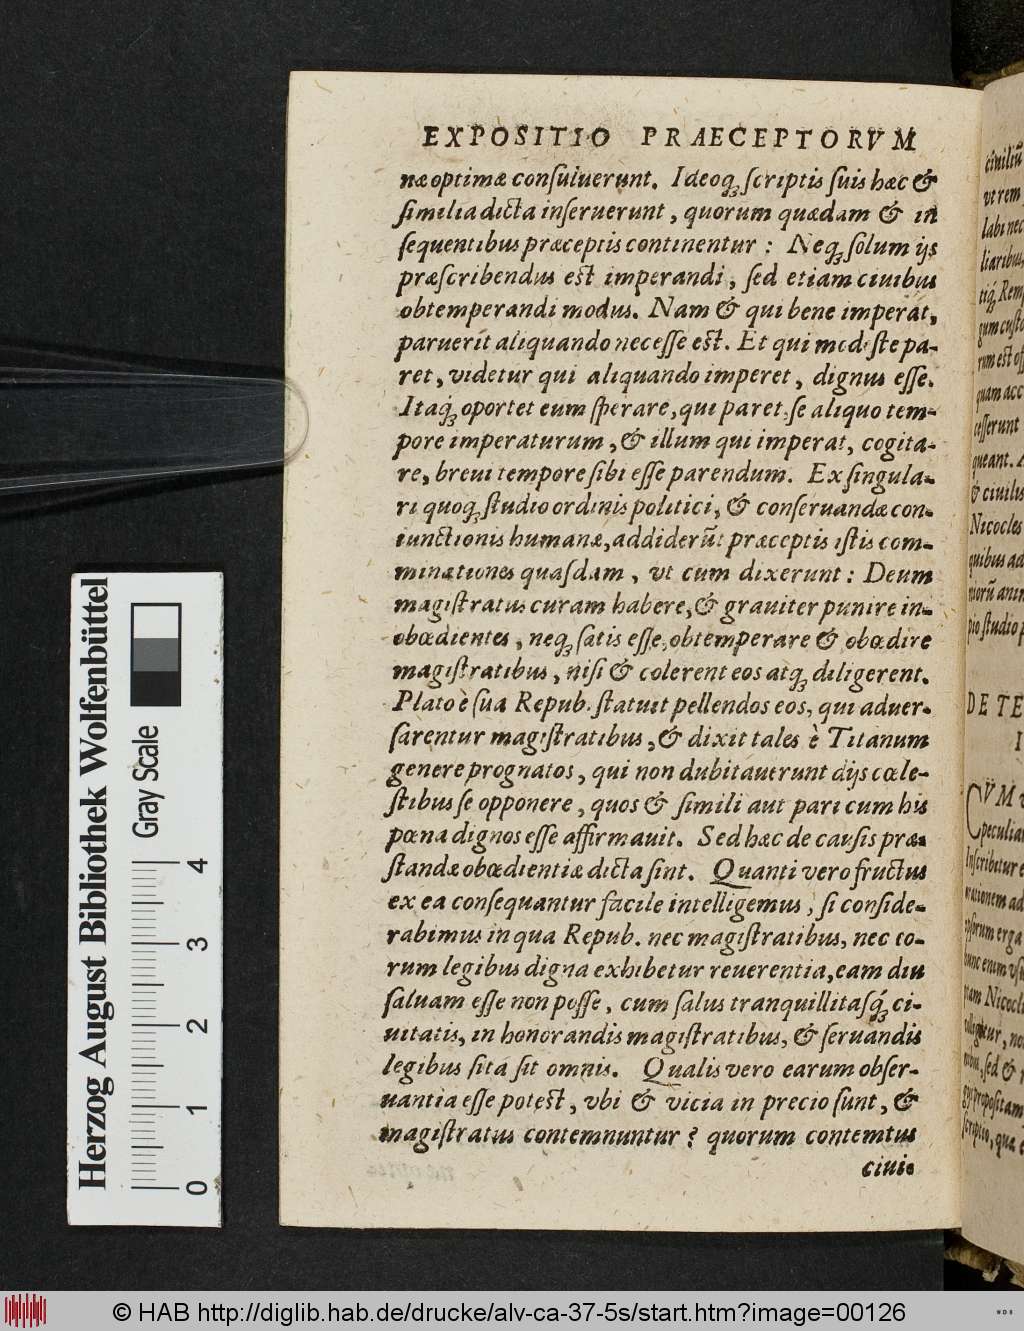 EXPOSITIO PRAECEPTORVM
næ optimæ consuluerunt. Ideoq́ꝫ scriptis suis hæc &
similia dicta inseruerunt, quorum quædam & in
sequentibus præceptis continentur: Neqꝫ solum ijs
præscribendus est imperandi, sed etiam ciuibus
obtemperandi modus. Nam & qui bene imperat,
paruerit aliquando necesse est. Et qui modeste pa-
ret, videtur qui aliquando imperet, dignus esse.
Itaq́ꝫ oportet eum sperare, qui paret, se aliquo tem-
pore imperaturum, & illum qui imperat, cogita-
re, breui tempore sibi esse parendum. Ex singula-
ri quoqꝫ studio ordinis politici, & conseruandæ con-
iunctionis humanæ, addiderūt præceptis istis com-
minationes quasdam, vt cum dixerunt: Deum
magistratus curam habere, & grauiter punire in-
obœdientes, neqꝫ satis esse, obtemperare & obœdire
magistratibus, nisi & colerent eos atqꝫ diligerent.
Plato è sua Repub. statuit pellendos eos, qui aduer-
sarentur magistratibus, & dixit tales è Titanum
genere prognatos, qui non dubitauerunt dijs cœle-
stibus se opponere, quos & simili aut pari cum his
pœna dignos esse affirmauit. Sed hæc de causis præ-
standæ obœdientiæ dicta sint. Quanti vero fructus
ex ea consequantur facile intelligemus, si conside-
rabimus in qua Repub. nec magistratibus, nec eo-
rum legibus digna exhibetur reuerentia, eam diu
saluam esse non posse, cum salus tranquillitasq́ꝫ ci-
uitatis, in honorandis magistratibus, & seruandis
legibus sita sit omnis. Qualis vero earum obser-
uantia esse potest, vbi & vicia in precio sunt, &
magistratus contemnuntur? quorum contemtus
ciui-
ciuiliū
vt rem
labi nec
liaribus
tiq́ꝫ Rem
gum custo
rum est off
quam acc
cesserunt
queant. A
& ciuilis
Nicocles
quibus ad
niorū anim
pio studio p
DE TE
I
CVM v
peculiar
Inscribitur e
orationem ad
hunc enim vsi
nam Nicocl
Herzog August Bibliothek Wolfenbüttel
Gray Scale
0 1 2 3 4
© HAB http://diglib.hab.de/drucke/alv-ca-37-5s/start.htm?image=00126